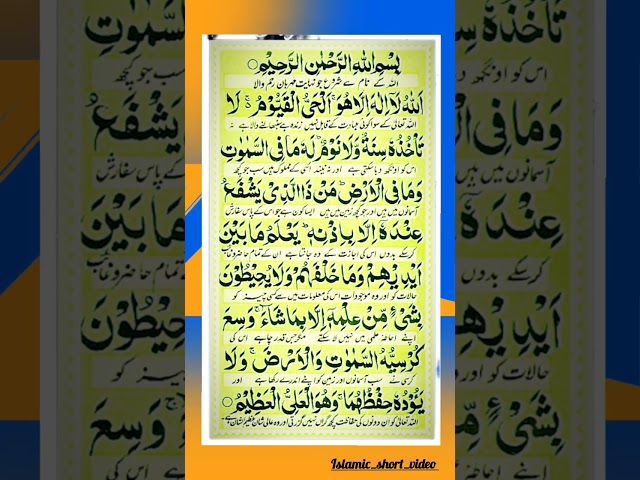 بِسْمِ اللهِ الرَّحْمٰنِ الرَّحِيْمِ ○
اللہ کے نام سے شروع جو نہایت مہربان رحم والا
اَللهُ لَا اِلٰهَ اِلَّا هُوَ ۚ اَلْحَيُّ الْقَيُّوْمُ ۬ لَا
اللہ تعالیٰ کے سوا کوئی عبادت کے قابل نہیں زندہ ہے سنبھالنے والا ہے نہ
تَاْخُذُهٗ سِنَةٌ وَّلَا نَوْمٌ ؕ لَهٗ مَا فِي السَّمٰوٰتِ
اس کو اونگھ دبا سکتی ہے اور نہ نیند اسی کے مملوک ہیں سب جو کچھ
وَمَا فِي الْاَرْضِ ؕ مَنْ ذَا الَّذِيْ يَشْفَعُ
آسمانوں میں ہیں اور جو کچھ زمین میں ہیں ایسا کون ہے جو اس کے پاس سفارش
عِنْدَهٗ اِلَّا بِاِذْنِهٖ ؕ يَعْلَمُ مَا بَيْنَ
کر سکے بدوں اس کی اجازت کے وہ جانتا ہے ان کے تمام حاضر و غائب
اَيْدِيْهِمْ وَمَا خَلْفَهُمْ ۚ وَلَا يُحِيْطُوْنَ
حالات کو اور وہ موجودات اس کی معلومات میں سے کسی چیز کو
بِشَيْءٍ مِّنْ عِلْمِهٖٓ اِلَّا بِمَا شَآءَ ۚ وَسِعَ
اپنے احاطۂ علمی میں نہیں لا سکتے مگر جس قدر چاہے اس کی
كُرْسِيُّهُ السَّمٰوٰتِ وَالْاَرْضَ ۚ وَلَا
کرسی نے سب آسمانوں اور زمین کو اپنے اندر لے رکھا ہے اور
يَـُٔوْدُهٗ حِفْظُهُمَا ۚ وَهُوَ الْعَلِيُّ الْعَظِيْمُ ○
اللہ تعالیٰ کو ان دونوں کی حفاظت کچھ گراں نہیں گزرتی اور وہ عالی شان عظیم الشان ہے
Islamic_short_video